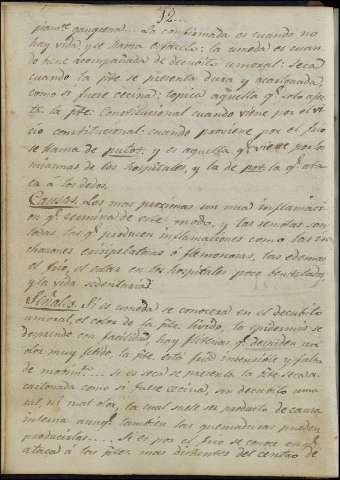 12..
gangrena... La confirmada es cuando no
hay vida, y se llama esfacelo: la umeda es cuan
do biene acompañada de decubito umoral: Seca
cuando la pte se presenta dura y acartonada,
como si fuere cecina: topica aquella q.e solo afec
ta la pte: Constitucional cuando viene por el vi
cio constitucional: cuando proviene por el frio
se llama de y es aquella q.e viene por los
miasmas de los hospitales, y la de pot. la q.e ata
ca a los dedos.
Causas. Las mas procsimas son una inflamaci
on q.e termina de este modo, y las remotas son
todas las q.e producen inflamaciones como las in
chazones erisipelatosas ó flemonosas, las edemas
el frio, el estar en los hospitales poco bentilados,
y la vida sedentaria.
Señales. Si es umeda se conocerá en el decubito
umoral, el color de la pte. livido, la epidermis se
desprende con facilidad, hay flictenas q.e despiden un
olor muy fetido, la pte. está fria insensible y falta
de movim.to... Si es seca se presenta la pte seca a
cartonada como si fuese cecina, sin decubito umo
ral, ni mal olor, la cual suele ser producto de causa
interna aunq.e tambien las quemaduras pueden
producirlas.... Si es por el frio se conoce en q.e
ataca á las ptes. mas distantes del centro de